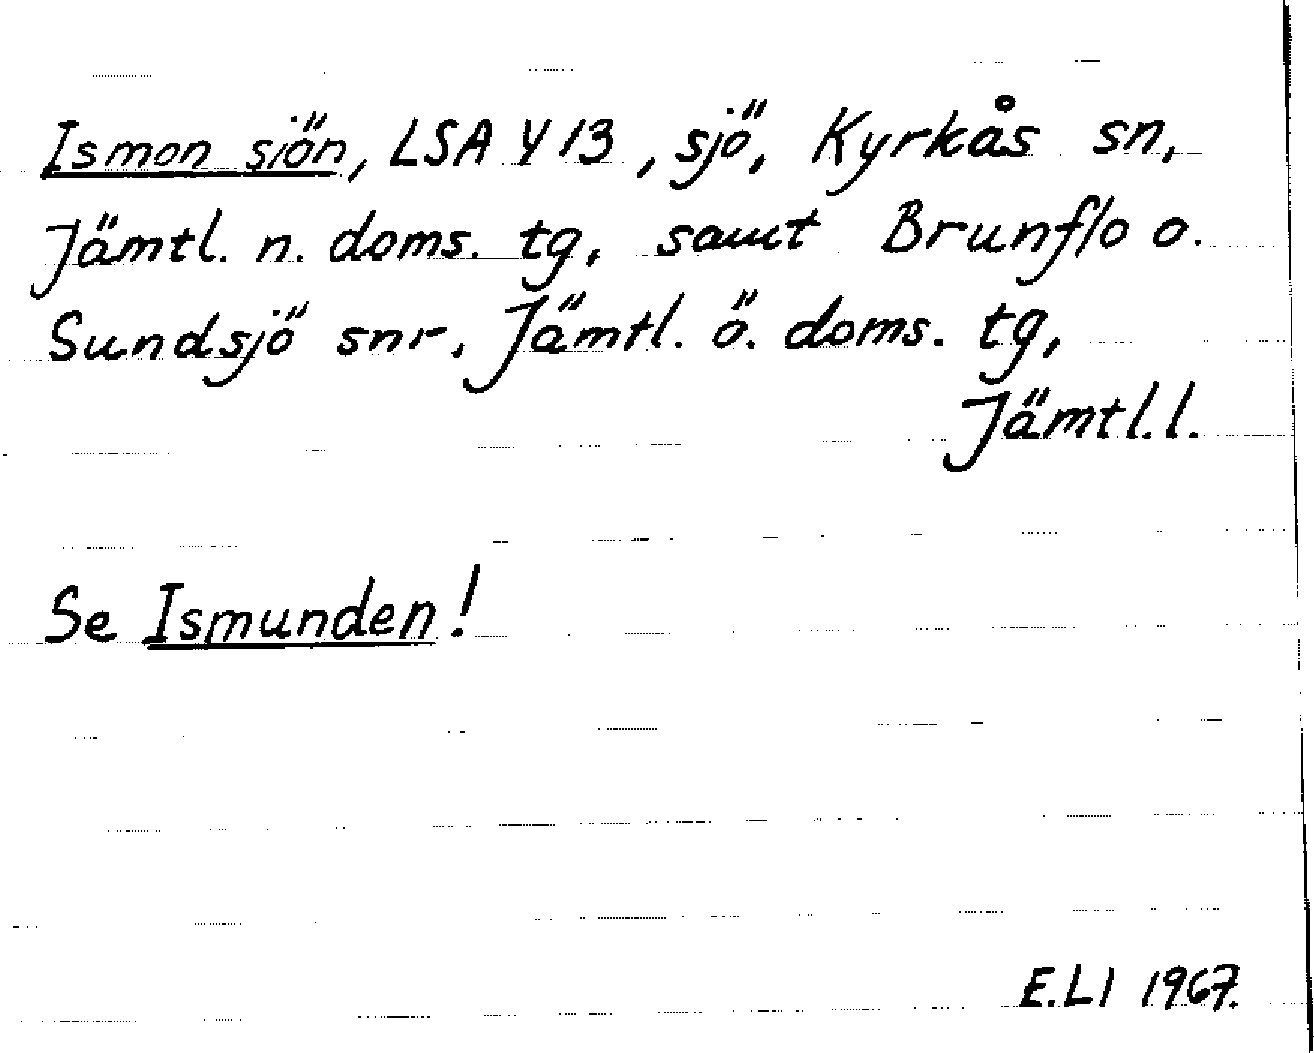 Ismon siön, LSA Y 13, sjö, Kyrkås sn,
Jämtl. n. doms. tg, samt Brunflo o.
Sundsjö snr, Jämtl. ö. doms. tg,
Jämtl. l.
Se Ismunden!
E.LI 1967.